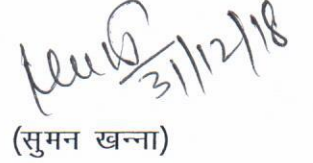 31/12/18
(सुमन खन्ना)